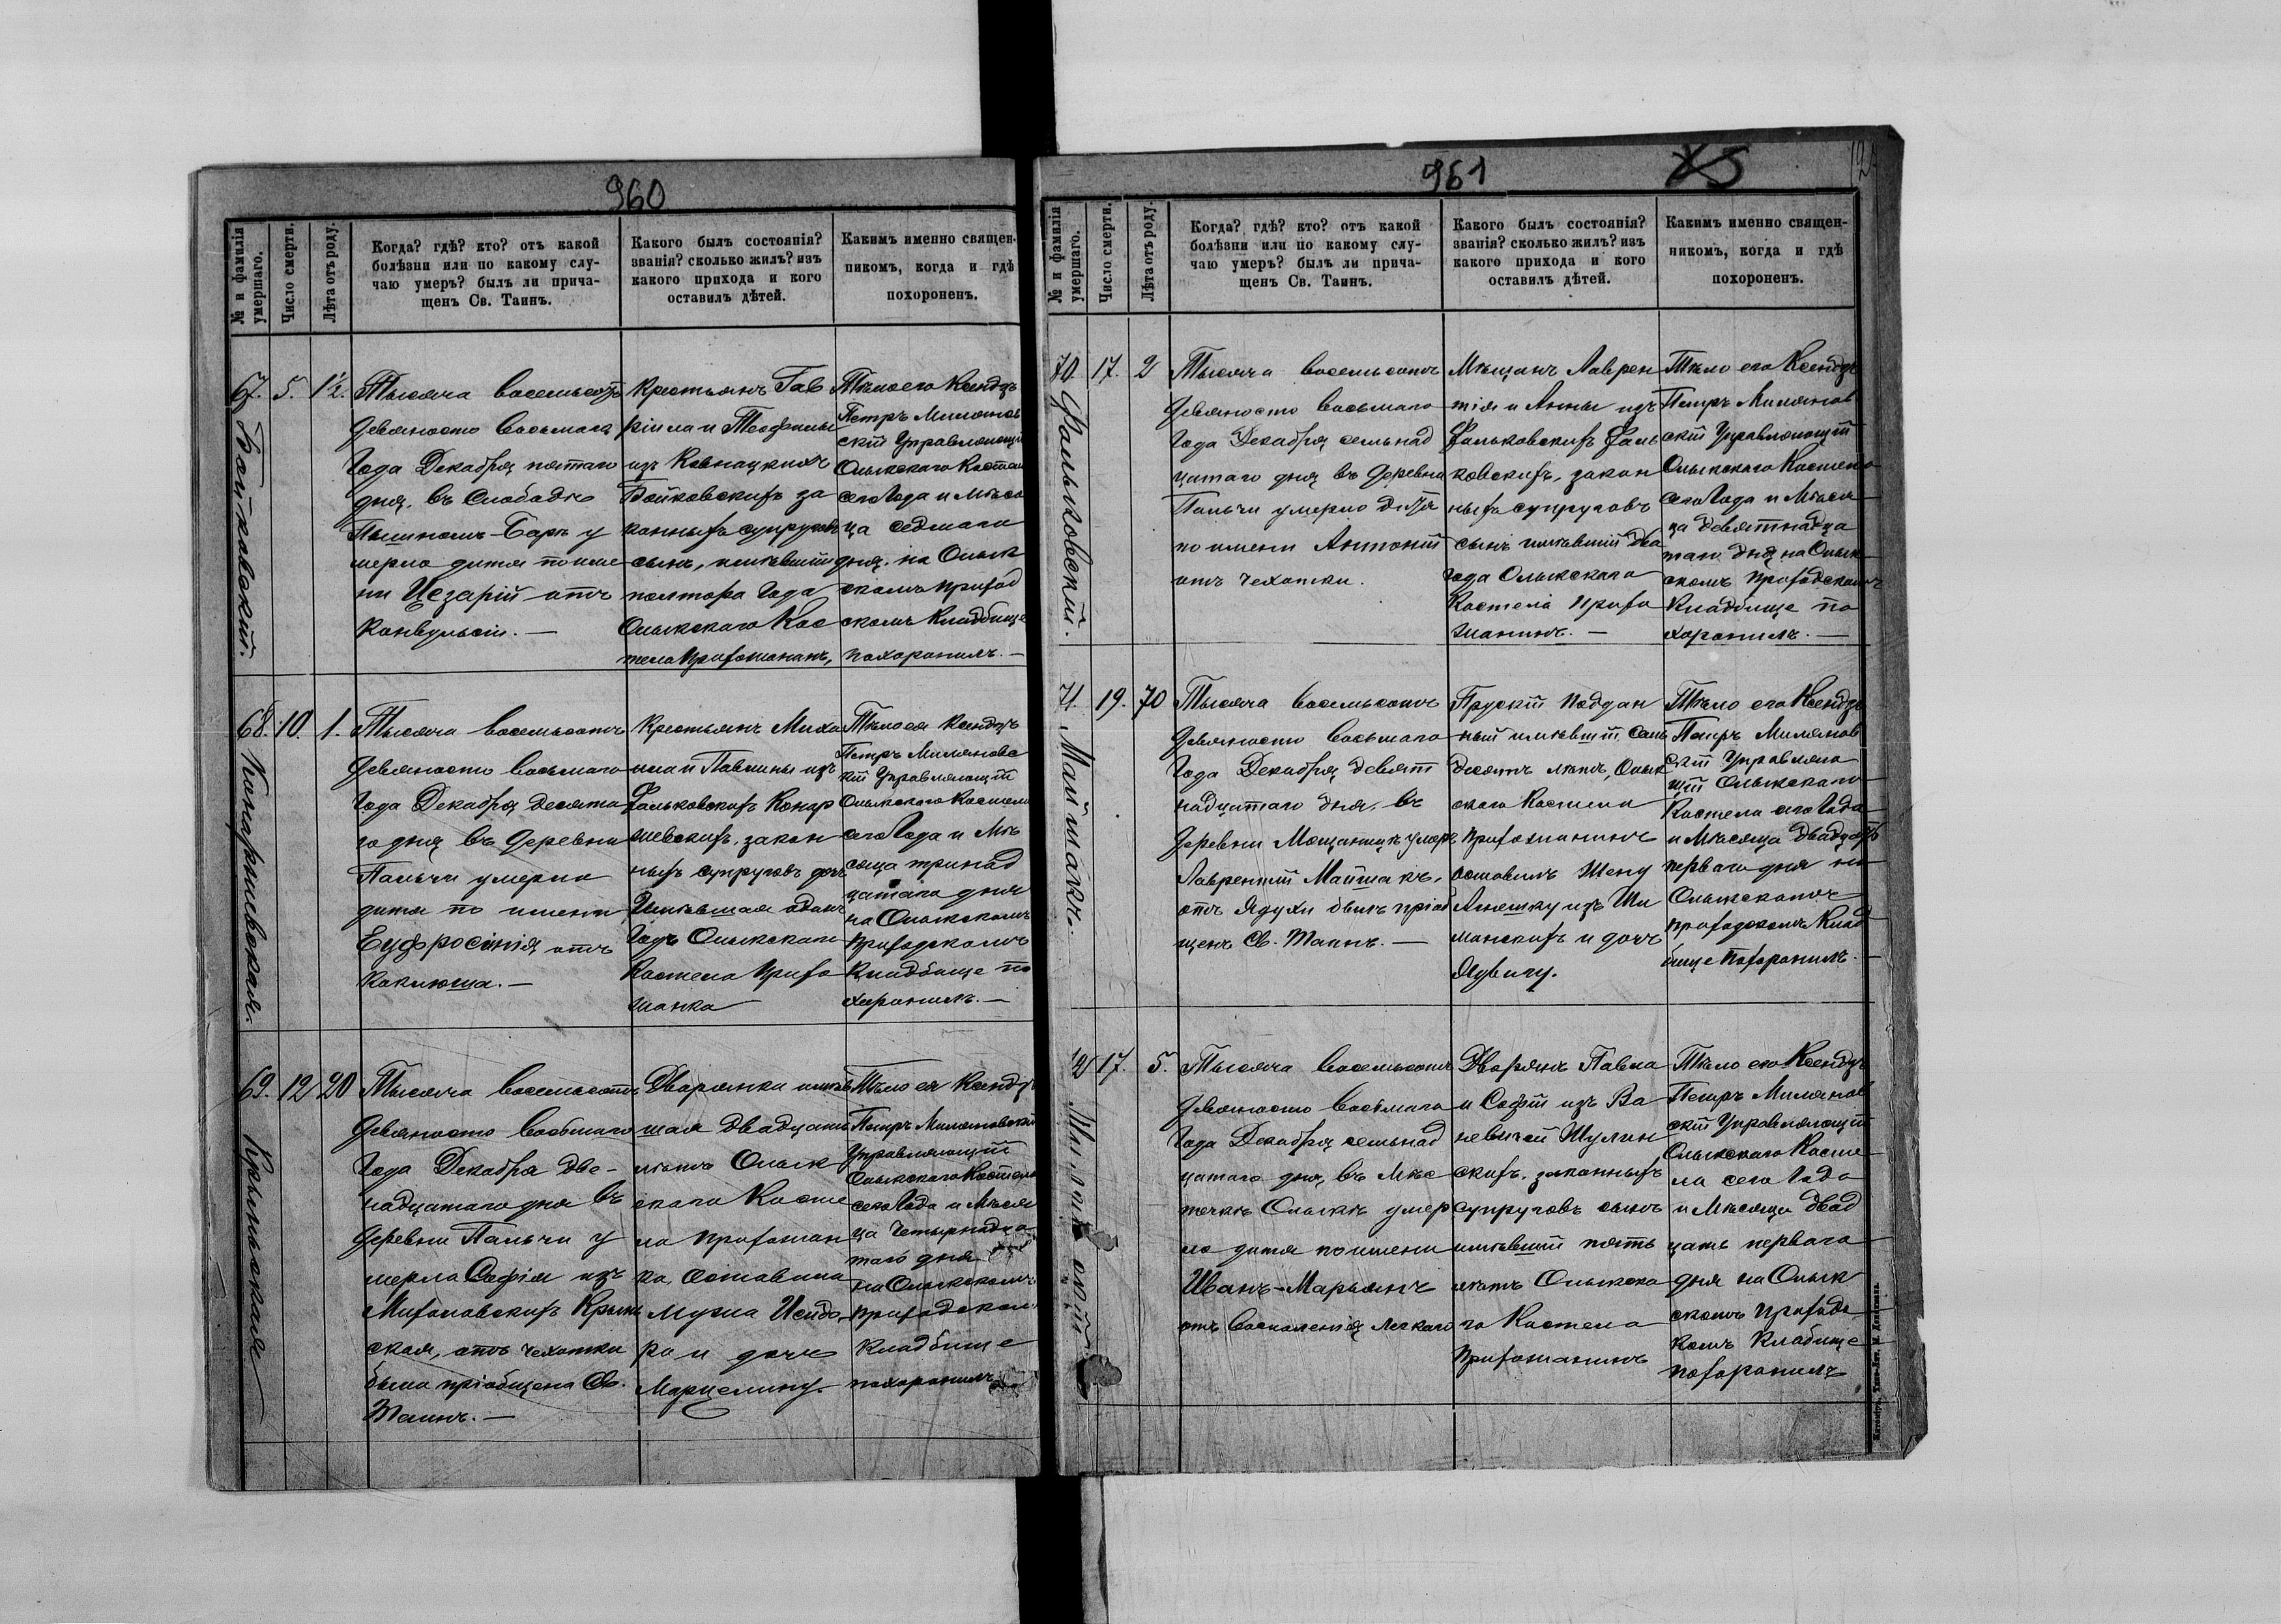 960
№ и фамилія умершаго.
Число смерти.
Лѣта отъ роду.
Когда? гдѣ? кто? отъ какой
болѣзни или по какому слу-
чаю умеръ? былъ ли прича-
щенъ Св. Таинъ.
Какого былъ состоянія?
званія? сколько жилъ? изъ
какого прихода и кого
оставилъ дѣтей.
Какимъ именно священ-
никомъ, когда и гдѣ
похороненъ.
67. Бойковскій.
5.
1½.
Тысяча восемьсотъ
девяносто восьмаго
Года Декабря пятаго
дня, въ Слободѣ
у
мерло дитя по име
ни Цезарій отъ
Конвульсіи. —
Крестьянъ Гав
ріила и Теофилы
изъ
Бойковскихъ за
конныхъ супруговъ
сынъ, имѣвшій
полтора Года
Олыкскаго Кос
тела прихожанинъ,
Тѣло его Ксендзъ
Петръ Миланов
скій Управляющій
Олыкскаго Костела
сего Года и Мѣся
ца седмаго
дня, на Олык
скомъ приход
скомъ Кладбище
похоронилъ. —
68.
10.
1.
Тысяча восемьсотъ
девяносто восьмаго
Года Декабря десята
го дня въ Деревни
Пальчи умерло
дитя по имени
Еуфросинія отъ
Коклюша. —
Крестьянъ Миха
ила и Павлины изъ
Фальковскихъ Конар
шевскихъ, закон
ныхъ супруговъ дочь
Имѣвшая одинъ
Годъ Олыкскаго
Костела Прихо
жанка
Тѣло ея Ксендзъ
Петръ Милановс
кій Управляющій
Олыкскаго Костела
сего Года и Мѣ
сяца тринад
цатаго дня
на Олыкскомъ
приходскомъ
Кладбище по
хоронилъ. —
69.
12
20
Тысяча восемьсотъ
девяносто восьмаго
Года Декабря две-
надцатаго дня въ
Деревни Пальчи у
мерла Софія изъ
Крыль
ская, отъ чехотки
была пріобщена Св.
Таинъ. —
Дворянка имѣв
шая двадцать
лѣтъ Олык
скаго Косте
ла прихожан
ка, оставила
Мужа Исидо
ра и дочь
Марцелину.
Тѣло ея Ксендзъ
Петръ Милановскій
Управляющій
Олыкскаго Костела
сего Года и Мѣся
ца четырнадца
таго дня
на Олыкскомъ
приходском
Кладбище
похоронилъ
961
№ и фамилія умершаго.
Число смерти.
Лѣта отъ роду.
Когда? гдѣ? кто? отъ какой
болѣзни или по какому слу-
чаю умеръ? былъ ли прича-
щенъ Св. Таинъ.
Какого былъ состоянія?
званія? сколько жилъ? изъ
какого прихода и кого
оставилъ дѣтей.
Какимъ именно священ-
никомъ, когда и гдѣ
похороненъ.
70 Фальковскій.
17.
2
Тысяча восемьсотъ
девяносто восьмаго
Года Декабря семьнад
цатаго дня въ Деревни
Пальчи умерло дитя
по имени Антоній
отъ чехотки.
Мѣщанъ Лаврен
тія и Анны изъ
Фальковскихъ Фаль
ковскихъ, закон
ныхъ супруговъ
сынъ имѣвшій два
года Олыкскаго
Костела прихо
жанинъ. —
Тѣло его Ксендзъ
Петръ Миланов
скій Управляющій
Олыкскаго Костела
сего Года и Мѣся
ца девятнадца
таго дня на Олык
скомъ приходскомъ
Кладбище по
хоронилъ. —
71. Майшакъ.
19.
70
Тысяча восемьсотъ
девяносто восьмаго
Года Декабря девят
надцатаго дня, въ
Деревни умеръ
Лаврентій Майшакъ,
отъ Ядухи былъ пріоб
щенъ Св. Таинъ. —
Прускій поддан
ный имѣвшій семь
десятъ лѣтъ, Олык
скаго Костела
прихожанинъ
оставилъ Жену
Агнешку изъ Ши
манскихъ и дочь
Ядвигу.
Тѣло его Ксендзъ
Петръ Миланов
скій Управляю
щій Олыкскаго
Костела сего Года
и Мѣсяца двадцать
перваго дня на
Олыкскомъ
приходскомъ Клад
бище похоронилъ. —
17.
5.
Тысяча восемьсотъ
девяносто восьмаго
Года Декабря семьнад
цатаго дня, въ Мѣс
течкѣ Олыкѣ умер
ло дитя по имени
Иванъ-Марьянъ
отъ воспаленія легкаго
Дворянъ Павла
и Софіи изъ
скихъ, законныхъ
супруговъ сынъ
имѣвшій пять
лѣтъ Олыкска
го Костела
прихожанинъ
Тѣло его Ксендзъ
Петръ Миланов
скій Управляющій
Олыкскаго Косте
ла сего Года
и Мѣсяца двад
цать перваго
дня на Олык
скомъ приходс
комъ Кладбище
похоронилъ